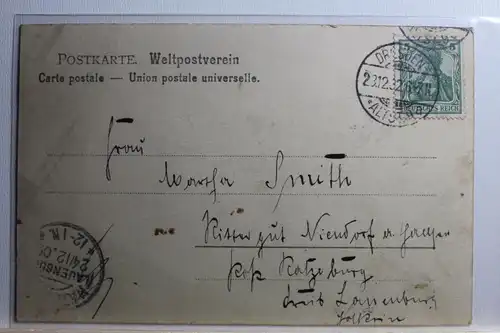 POSTKARTE. Weltpostverein
Carte postale — Union postale universelle.
DRESDEN
ALTST.
DEUTSCHES REICH
Frau
Martha Smith
Rittergut Niendorf a
Post Ratzeburg
Kreis Lauenburg
LAUENBURG
24/12.
12-1N.